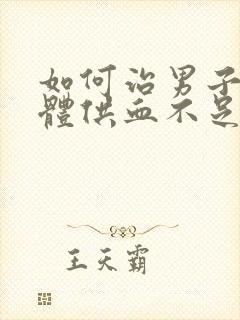 如何治男子
體供血不足
王天霸